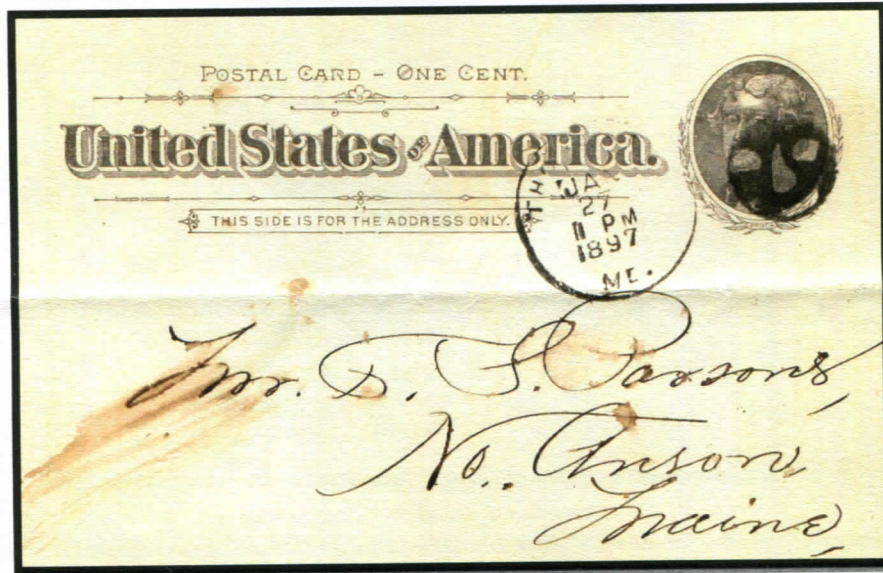 POSTAL CARD - ONE CENT.
United States OF America.
THIS SIDE IS FOR THE ADDRESS ONLY.
JA
27
11 PM
1897
ME.
Mr. D. F. Parsons,
No. Anson,
Maine,